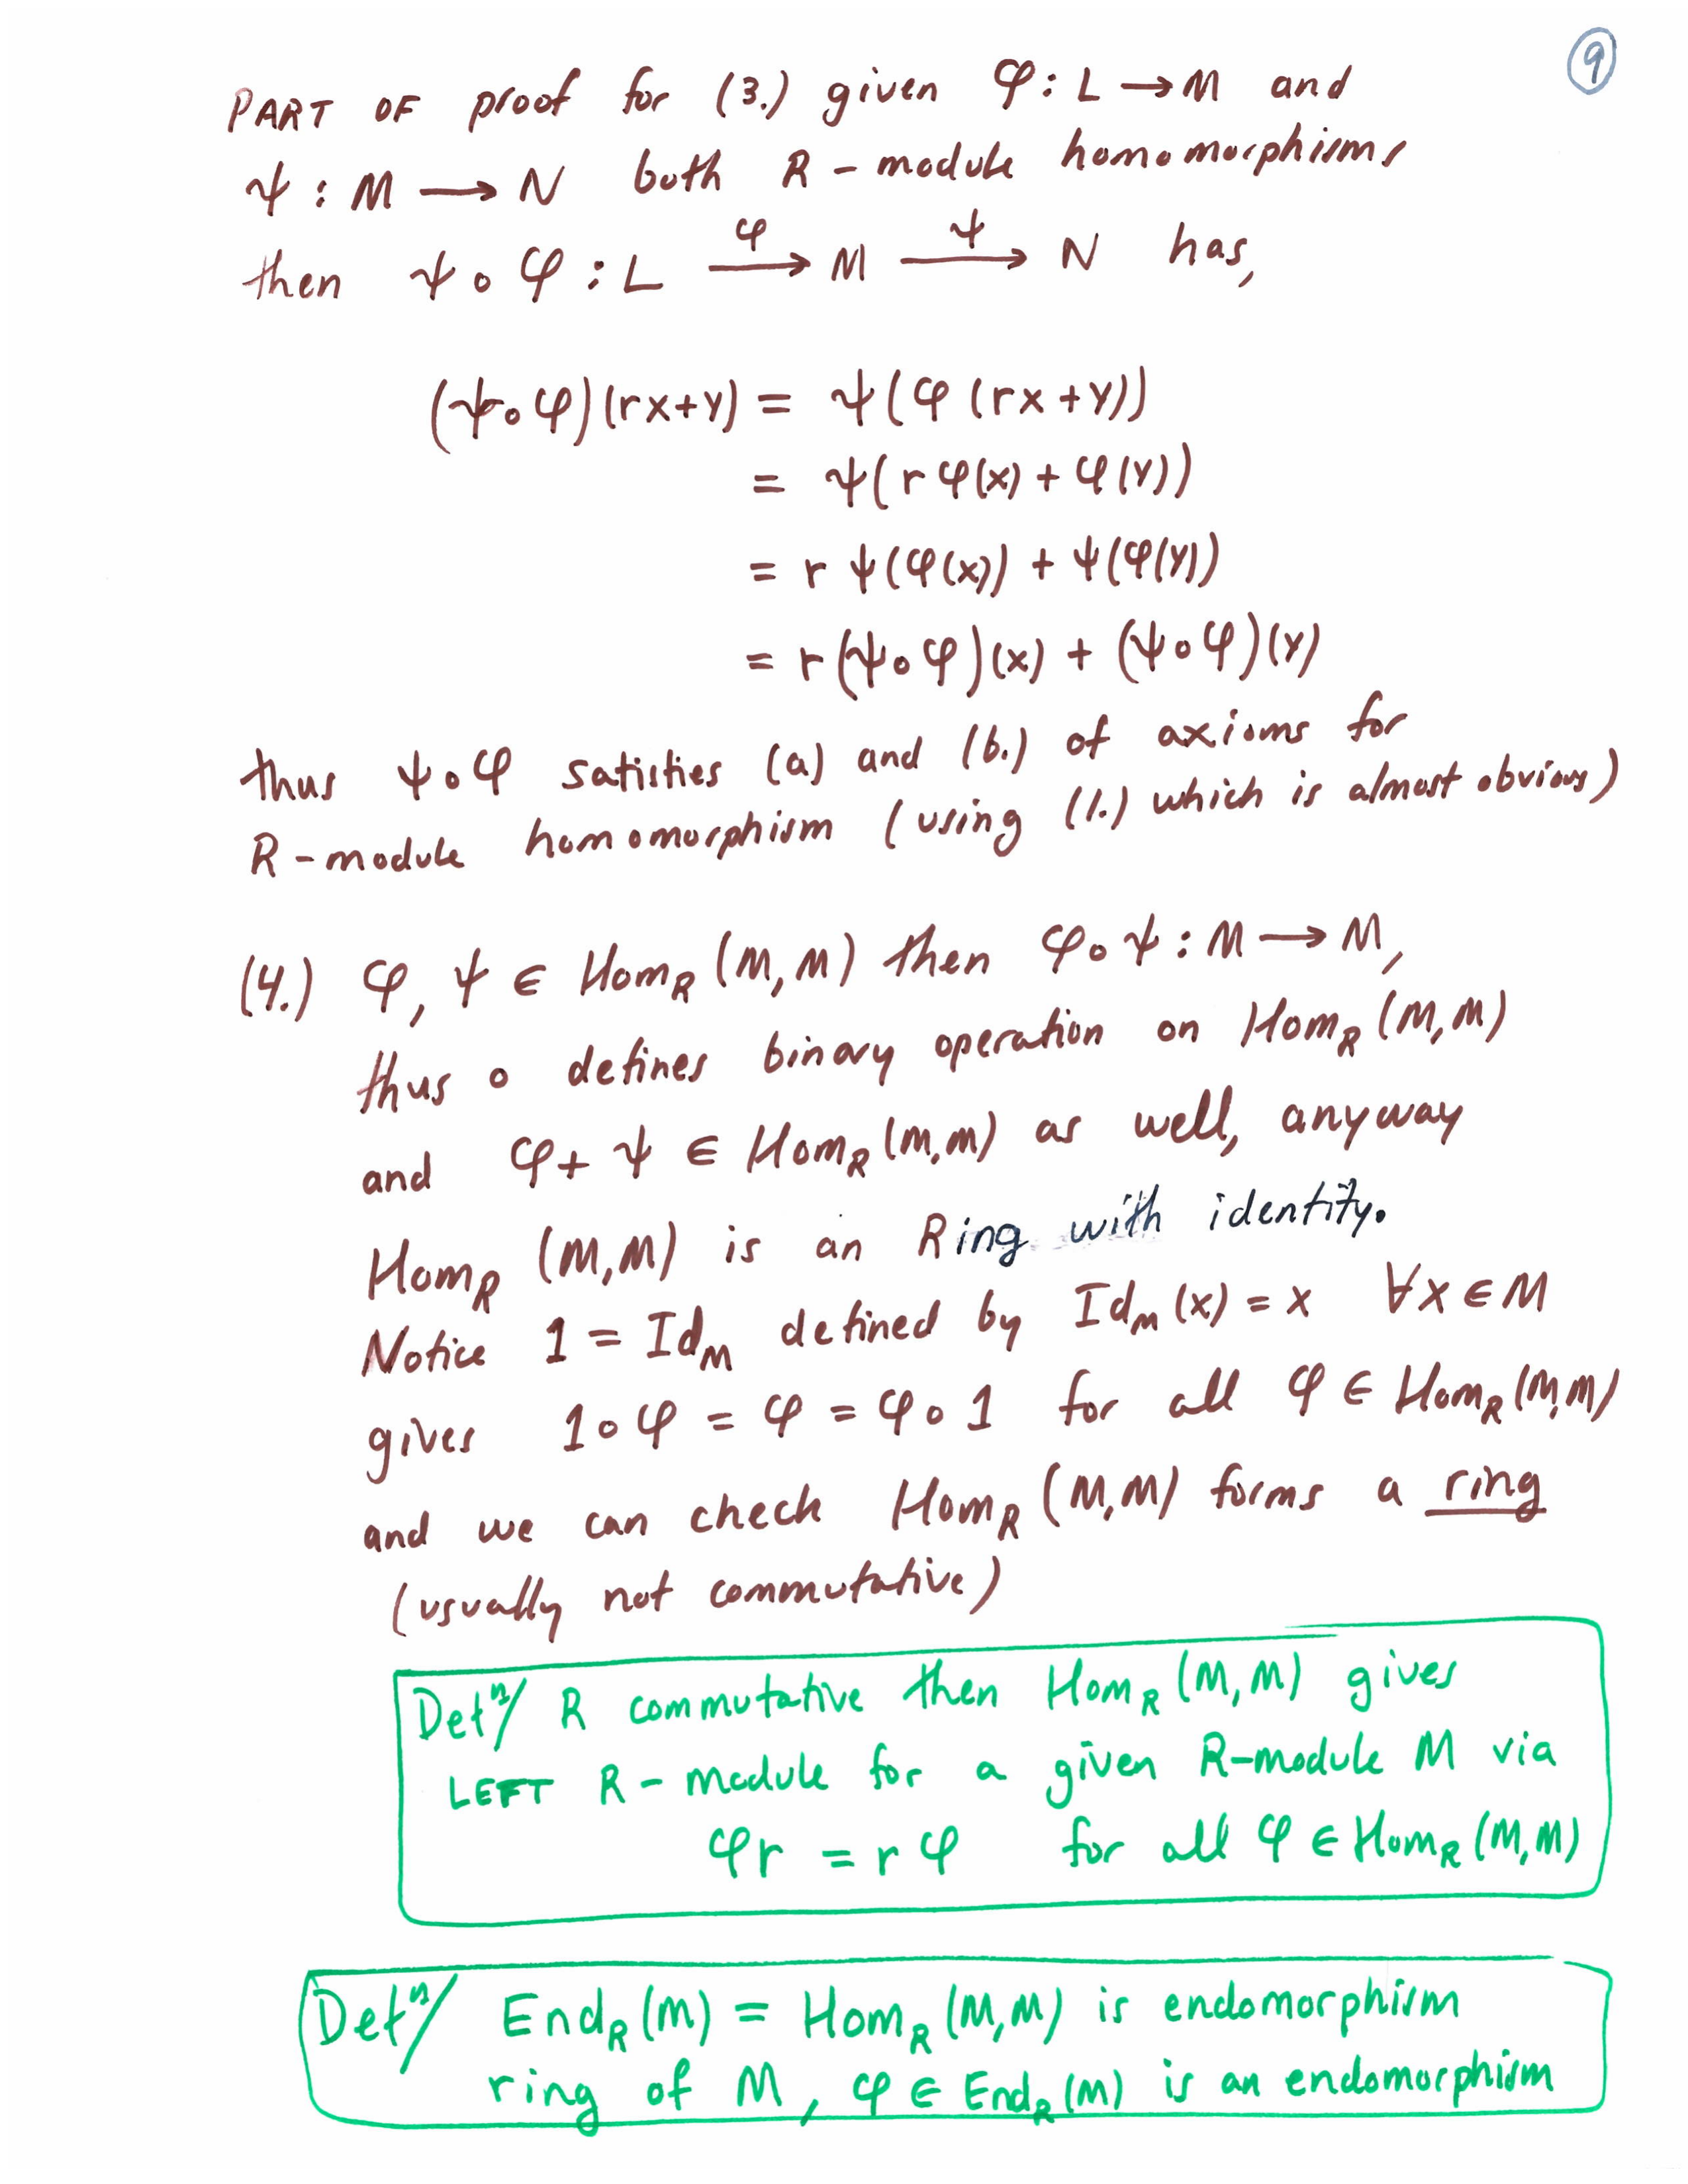 9
PART OF proof for (3.) given φ: L → M and
ψ : M → N both R-module homomorphisms
then ψ∘φ : L →^φ M →^ψ N has,
(ψ∘φ)(rx+y) = ψ(φ(rx+y))
= ψ(rφ(x) + φ(y))
= rψ(φ(x)) + ψ(φ(y))
= r(ψ∘φ)(x) + (ψ∘φ)(y)
thus ψ∘φ satisfies (a) and (b.) of axioms for
R-module homomorphism (using (1.) which is almost obvious)
(4.) φ, ψ ∈ Hom_R(M,M) then φ∘ψ : M → M,
thus ∘ defines binary operation on Hom_R(M,M)
and φ+ψ ∈ Hom_R(M,M) as well, anyway
Hom_R(M,M) is an Ring with identity.
Notice 1 = Id_M defined by Id_M(x) = x ∀x ∈ M
gives 1∘φ = φ = φ∘1 for all φ ∈ Hom_R(M,M)
and we can check Hom_R(M,M) forms a ring
(usually not commutative)
Defⁿ/ R commutative then Hom_R(M,M) gives
LEFT R-module for a given R-module M via
φr = rφ for all φ ∈ Hom_R(M,M)
Defⁿ/ End_R(M) = Hom_R(M,M) is endomorphism
ring of M, φ ∈ End_R(M) is an endomorphism